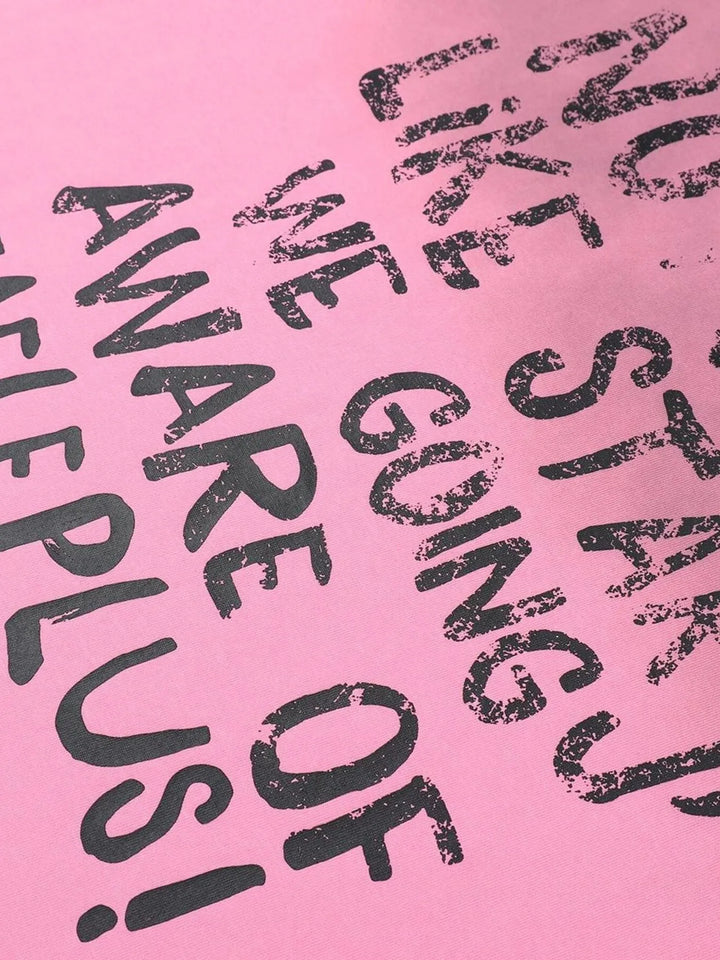 LIKE STAR
WE GOING
AWARE OF
PLUS!